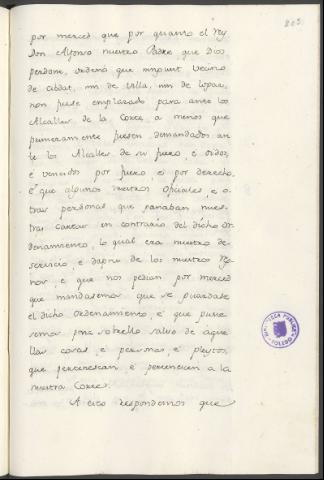 203.
por merced que por quanto el Rey
don Alfonso nuestro Padre que Dios
perdone, ordenó que ningunt vecino
de cibdat, nin de villa, nin de logar,
non fuese emplazado para ante los
Alcalles de la Corte, a menos que
primeramente fuesen demandados an-
te los Alcalles de su fuero, é oidos,
é vencidos por fuero, é por derecho,
é que algunos nuestros oficiales, é o-
tras personas que ganaban nues-
tras cartas en contrario del dicho or-
denamiento, lo qual era nuestro de-
servicio, é dapno de los nuestros Reg-
nos, é que nos pedian por merced
que mandasemos que se guardase
el dicho ordenamiento, é que pusie-
semos pena sobrello salvo de aque-
llas cosas, é personas, é pleytos,
que pertenescian, é pertenecen a la
nuestra Corte.
A esto respondemos que
BIBLIOTECA PUBLICA
TOLEDO